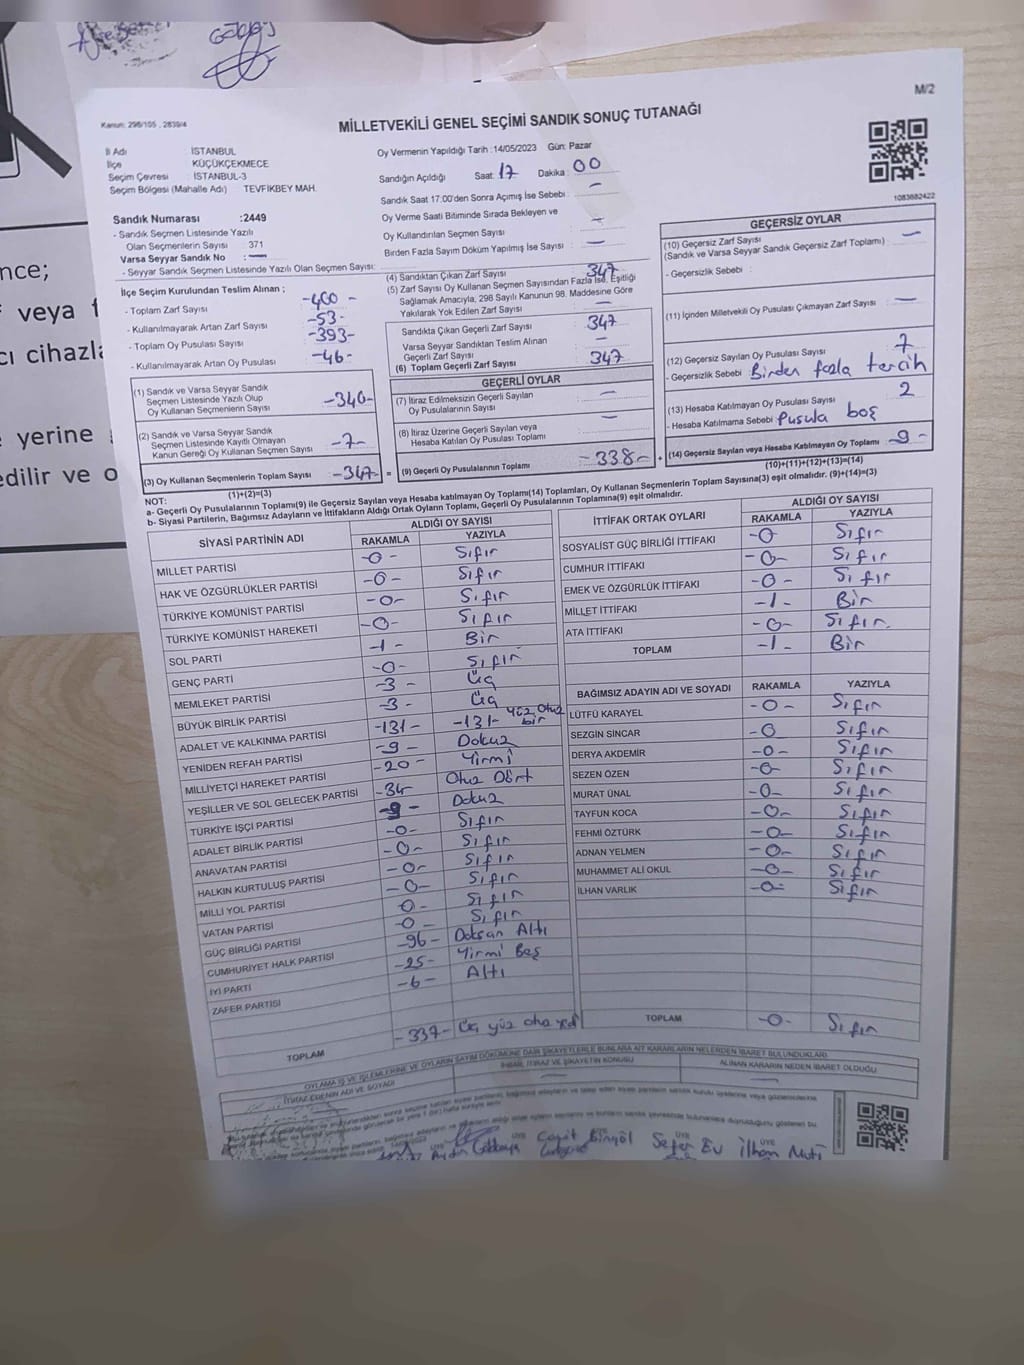 Gökbaş
M/2
Kanun: 298/105 , 2839/4
MİLLETVEKİLİ GENEL SEÇİMİ SANDIK SONUÇ TUTANAĞI
İl Adı İSTANBUL
İlçe KÜÇÜKÇEKMECE
Seçim Çevresi : İSTANBUL-3
Seçim Bölgesi (Mahalle Adı) TEVFİKBEY MAH.
Oy Vermenin Yapıldığı Tarih :14/05/2023 Gün: Pazar
Sandığın Açıldığı Saat: 17 Dakika: 00
Sandık Saat 17:00'den Sonra Açımış İse Sebebi : —
Oy Verme Saati Bitiminde Sırada Bekleyen ve
Oy Kullandırılan Seçmen Sayısı : —
Birden Fazla Sayım Döküm Yapılmış İse Sayısı : —
1083682422
Sandık Numarası :2449
- Sandık Seçmen Listesinde Yazılı
Olan Seçmenlerin Sayısı : 371
Varsa Seyyar Sandık No : —
- Seyyar Sandık Seçmen Listesinde Yazılı Olan Seçmen Sayısı:
İlçe Seçim Kurulundan Teslim Alınan ;
- Toplam Zarf Sayısı -400-
- Kullanılmayarak Artan Zarf Sayısı -53-
- Toplam Oy Pusulası Sayısı -393-
- Kullanılmayarak Artan Oy Pusulası -46-
(1) Sandık ve Varsa Seyyar Sandık
Seçmen Listesinde Yazılı Olup
Oy Kullanan Seçmenlerin Sayısı -340-
(2) Sandık ve Varsa Seyyar Sandık
Seçmen Listesinde Kayıtlı Olmayan
Kanun Gereği Oy Kullanan Seçmen Sayısı -7-
(3) Oy Kullanan Seçmenlerin Toplam Sayısı -347-
(1)+(2)=(3)
(4) Sandıktan Çıkan Zarf Sayısı 347
(5) Zarf Sayısı Oy Kullanan Seçmen Sayısından Fazla İse, Eşitliği
Sağlamak Amacıyla, 298 Sayılı Kanunun 98. Maddesine Göre
Yakılarak Yok Edilen Zarf Sayısı : —
Sandıkta Çıkan Geçerli Zarf Sayısı : 347
Varsa Seyyar Sandıktan Teslim Alınan
Geçerli Zarf Sayısı : —
(6) Toplam Geçerli Zarf Sayısı : 347
GEÇERLİ OYLAR
(7) İtiraz Edilmeksizin Geçerli Sayılan
Oy Pusulalarının Sayısı : —
(8) İtiraz Üzerine Geçerli Sayılan veya
Hesaba Katılan Oy Pusulası Toplamı : —
= (9) Geçerli Oy Pusulalarının Toplamı -338- +
GEÇERSİZ OYLAR
(10) Geçersiz Zarf Sayısı
(Sandık ve Varsa Seyyar Sandık Geçersiz Zarf Toplamı) : —
- Geçersizlik Sebebi :
(11) İçinden Milletvekili Oy Pusulası Çıkmayan Zarf Sayısı : —
(12) Geçersiz Sayılan Oy Pusulası Sayısı : 7
- Geçersizlik Sebebi : Birden fazla tercih
(13) Hesaba Katılmayan Oy Pusulası Sayısı : 2
- Hesaba Katılmama Sebebi : Pusula boş
(14) Geçersiz Sayılan veya Hesaba Katılmayan Oy Toplamı : -9-
(10)+(11)+(12)+(13)=(14)
NOT:
a- Geçerli Oy Pusulalarının Toplamı(9) ile Geçersiz Sayılan veya Hesaba katılmayan Oy Toplamı(14) Toplamları, Oy Kullanan Seçmenlerin Toplam Sayısına(3) eşit olmalıdır. (9)+(14)=(3)
b- Siyasi Partilerin, Bağımsız Adayların ve İttifakların Aldığı Ortak Oyların Toplamı, Geçerli Oy Pusulalarının Toplamına(9) eşit olmalıdır.
SİYASİ PARTİNİN ADI ALDIĞI OY SAYISI
RAKAMLA YAZIYLA
MİLLET PARTİSİ -0- Sıfır
HAK VE ÖZGÜRLÜKLER PARTİSİ -0- Sıfır
TÜRKİYE KOMÜNİST PARTİSİ -0- Sıfır
TÜRKİYE KOMÜNİST HAREKETİ -0- Sıfır
SOL PARTİ -1- Bir
GENÇ PARTİ -0- Sıfır
MEMLEKET PARTİSİ -3- Üç
BÜYÜK BİRLİK PARTİSİ -3- Üç
ADALET VE KALKINMA PARTİSİ -131- -131- Yüz Otuz bir
YENİDEN REFAH PARTİSİ -9- Dokuz
MİLLİYETÇİ HAREKET PARTİSİ -20- Yirmi
YEŞİLLER VE SOL GELECEK PARTİSİ -34 Otuz Dört
TÜRKİYE İŞÇİ PARTİSİ -9- Dokuz
ADALET BİRLİK PARTİSİ -0- Sıfır
ANAVATAN PARTİSİ -0- Sıfır
HALKIN KURTULUŞ PARTİSİ -0- Sıfır
MİLLİ YOL PARTİSİ -0- Sıfır
VATAN PARTİSİ -0- Sıfır
GÜÇ BİRLİĞİ PARTİSİ -0- Sıfır
CUMHURİYET HALK PARTİSİ -96- Doksan Altı
İYİ PARTİ -25- Yirmi Beş
ZAFER PARTİSİ -6- Altı
TOPLAM -337- Üç yüz otuz yedi
İTTİFAK ORTAK OYLARI ALDIĞI OY SAYISI
RAKAMLA YAZIYLA
SOSYALİST GÜÇ BİRLİĞİ İTTİFAKI -0- Sıfır
CUMHUR İTTİFAKI -0- Sıfır
EMEK VE ÖZGÜRLÜK İTTİFAKI -0- Sıfır
MİLLET İTTİFAKI -1- Bir
ATA İTTİFAKI -0- Sıfır
TOPLAM -1- Bir
BAĞIMSIZ ADAYIN ADI VE SOYADI RAKAMLA YAZIYLA
LÜTFÜ KARAYEL -0- Sıfır
SEZGİN SİNCAR -0 Sıfır
DERYA AKDEMİR -0- Sıfır
SEZEN ÖZEN -0- Sıfır
MURAT ÜNAL -0- Sıfır
TAYFUN KOCA -0- Sıfır
FEHMİ ÖZTÜRK -0- Sıfır
ADNAN YELMEN -0- Sıfır
MUHAMMET ALİ OKUL -0- Sıfır
İLHAN VARLIK -0- Sıfır
TOPLAM -0- Sıfır
OYLAMA İŞ VE İŞLEMLERİNE VE OYLARIN SAYIM DÖKÜMÜNE DAİR ŞİKAYETLERLE BUNLARA AİT KARARLARIN NELERDEN İBARET BULUNDUKLARI
İTİRAZ EDENİN ADI VE SOYADI İHBAR, İTİRAZ VE ŞİKAYETİN KONUSU ALINAN KARARIN NEDEN İBARET OLDUĞU
ÜYE ÜYE ÜYE ÜYE
Cahit Bingöl Sefer Ev İlhan Muti
nce;
veya
cı cihazla
yerine
edilir ve o